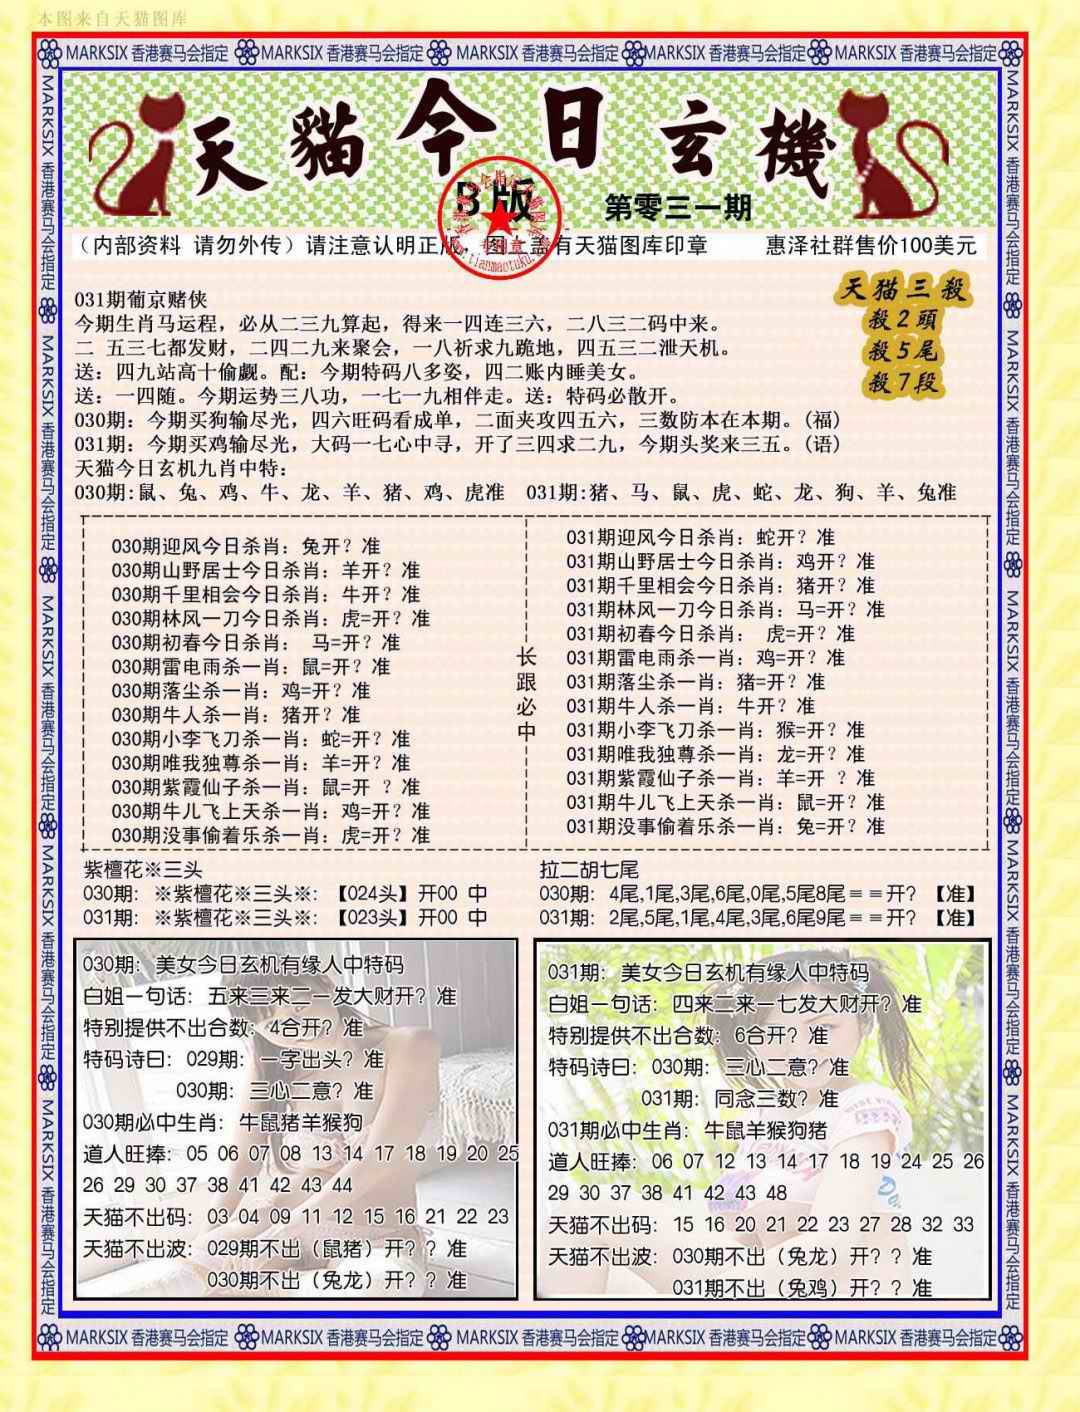 本图来自天猫图库
MARKSIX 香港赛马会指定 MARKSIX 香港赛马会指定 MARKSIX 香港赛马会指定 MARKSIX 香港赛马会指定 MARKSIX 香港赛马会指定
MARKSIX 香港赛马会指定 MARKSIX 香港赛马会指定 MARKSIX 香港赛马会指定 MARKSIX 香港赛马会指定 MARKSIX 香港赛马会指定
MARKSIX 香港赛马会指定 MARKSIX 香港赛马会指定 MARKSIX 香港赛马会指定 MARKSIX 香港赛马会指定 MARKSIX 香港赛马会指定
天貓今日玄機
B版
第零三一期
www.tianmaotuku.
（内部资料 请勿外传）请注意认明正版，图上盖有天猫图库印章 惠泽社群售价100美元
天猫三殺
殺2頭
殺5尾
殺7段
031期葡京赌侠
今期生肖马运程，必从二三九算起，得来一四连三六，二八三二码中来。
二 五三七都发财，二四二九来聚会，一八祈求九跪地，四五三二泄天机。
送：四九站高十偷觑。配：今期特码八多姿，四二账内睡美女。
送：一四随。今期运势三八功，一七一九相伴走。送：特码必散开。
030期：今期买狗输尽光，四六旺码看成单，二面夹攻四五六，三数防本在本期。(福)
031期：今期买鸡输尽光，大码一七心中寻，开了三四求二九，今期头奖来三五。(语)
天猫今日玄机九肖中特：
030期:鼠、兔、鸡、牛、龙、羊、猪、鸡、虎准 031期:猪、马、鼠、虎、蛇、龙、狗、羊、兔准
030期迎风今日杀肖：兔开？准
030期山野居士今日杀肖：羊开？准
030期千里相会今日杀肖：牛开？准
030期林风一刀今日杀肖：虎=开？准
030期初春今日杀肖： 马=开？准
030期雷电雨杀一肖：鼠=开？准
030期落尘杀一肖：鸡=开？准
030期牛人杀一肖：猪开？准
030期小李飞刀杀一肖：蛇=开？准
030期唯我独尊杀一肖：羊=开？准
030期紫霞仙子杀一肖：鼠=开 ？准
030期牛儿飞上天杀一肖：鸡=开？准
030期没事偷着乐杀一肖：虎=开？准
长跟必中
031期迎风今日杀肖：蛇开？准
031期山野居士今日杀肖：鸡开？准
031期千里相会今日杀肖：猪开？准
031期林风一刀今日杀肖：马=开？准
031期初春今日杀肖： 虎=开？准
031期雷电雨杀一肖：鸡=开？准
031期落尘杀一肖：猪=开？准
031期牛人杀一肖：牛开？准
031期小李飞刀杀一肖：猴=开？准
031期唯我独尊杀一肖：龙=开？准
031期紫霞仙子杀一肖：羊=开 ？准
031期牛儿飞上天杀一肖：鼠=开？准
031期没事偷着乐杀一肖：兔=开？准
紫檀花※三头
030期：※紫檀花※三头※:【024头】开00 中
031期：※紫檀花※三头※:【023头】开00 中
拉二胡七尾
030期：4尾,1尾,3尾,6尾,0尾,5尾8尾≡≡开？【准】
031期：2尾,5尾,1尾,4尾,3尾,6尾9尾≡≡开？【准】
030期：美女今日玄机有缘人中特码
白姐一句话：五来三来二一发大财开？准
特别提供不出合数：4合开？准
特码诗曰：029期：一字出头？准
030期：三心二意？准
030期必中生肖：牛鼠猪羊猴狗
道人旺捧：05 06 07 08 13 14 17 18 19 20 25
26 29 30 37 38 41 42 43 44
天猫不出码：03 04 09 11 12 15 16 21 22 23
天猫不出波：029期不出（鼠猪）开？？准
030期不出（兔龙）开？？准
031期：美女今日玄机有缘人中特码
白姐一句话：四来二来一七发大财开？准
特别提供不出合数：6合开？准
特码诗曰：030期：三心二意？准
031期：同念三数？准
031期必中生肖：牛鼠羊猴狗猪
道人旺捧：06 07 12 13 14 17 18 19 24 25 26
29 30 37 38 41 42 43 48
天猫不出码：15 16 20 21 22 23 27 28 32 33
天猫不出波：030期不出（兔龙）开？？准
031期不出（兔鸡）开？？准
MARKSIX 香港赛马会指定 MARKSIX 香港赛马会指定 MARKSIX 香港赛马会指定 MARKSIX 香港赛马会指定 MARKSIX 香港赛马会指定